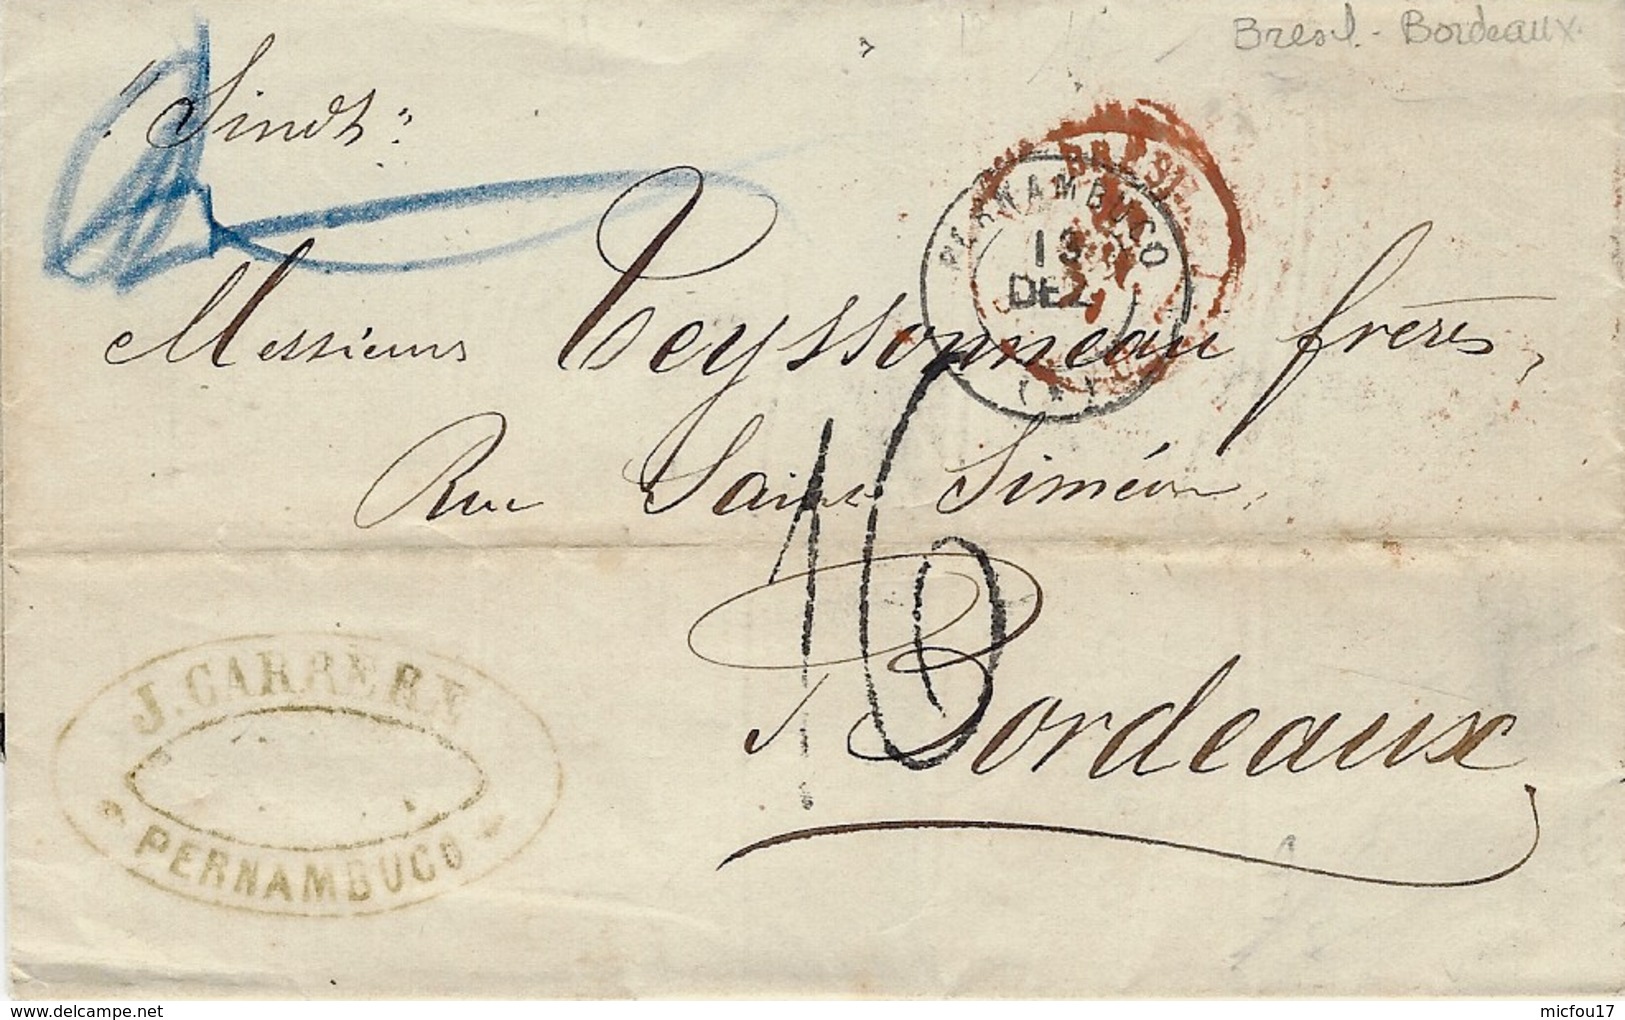 Bresil - Bordeaux.
"Sindh"
BRESIL
PERNAMBUCO
13
DEZ
Messieurs Teyssonneau frères,
Rue Saint Siméon,
16
Bordeaux
J. CARRERE
PERNAMBUCO
delcampe.net
micfou17